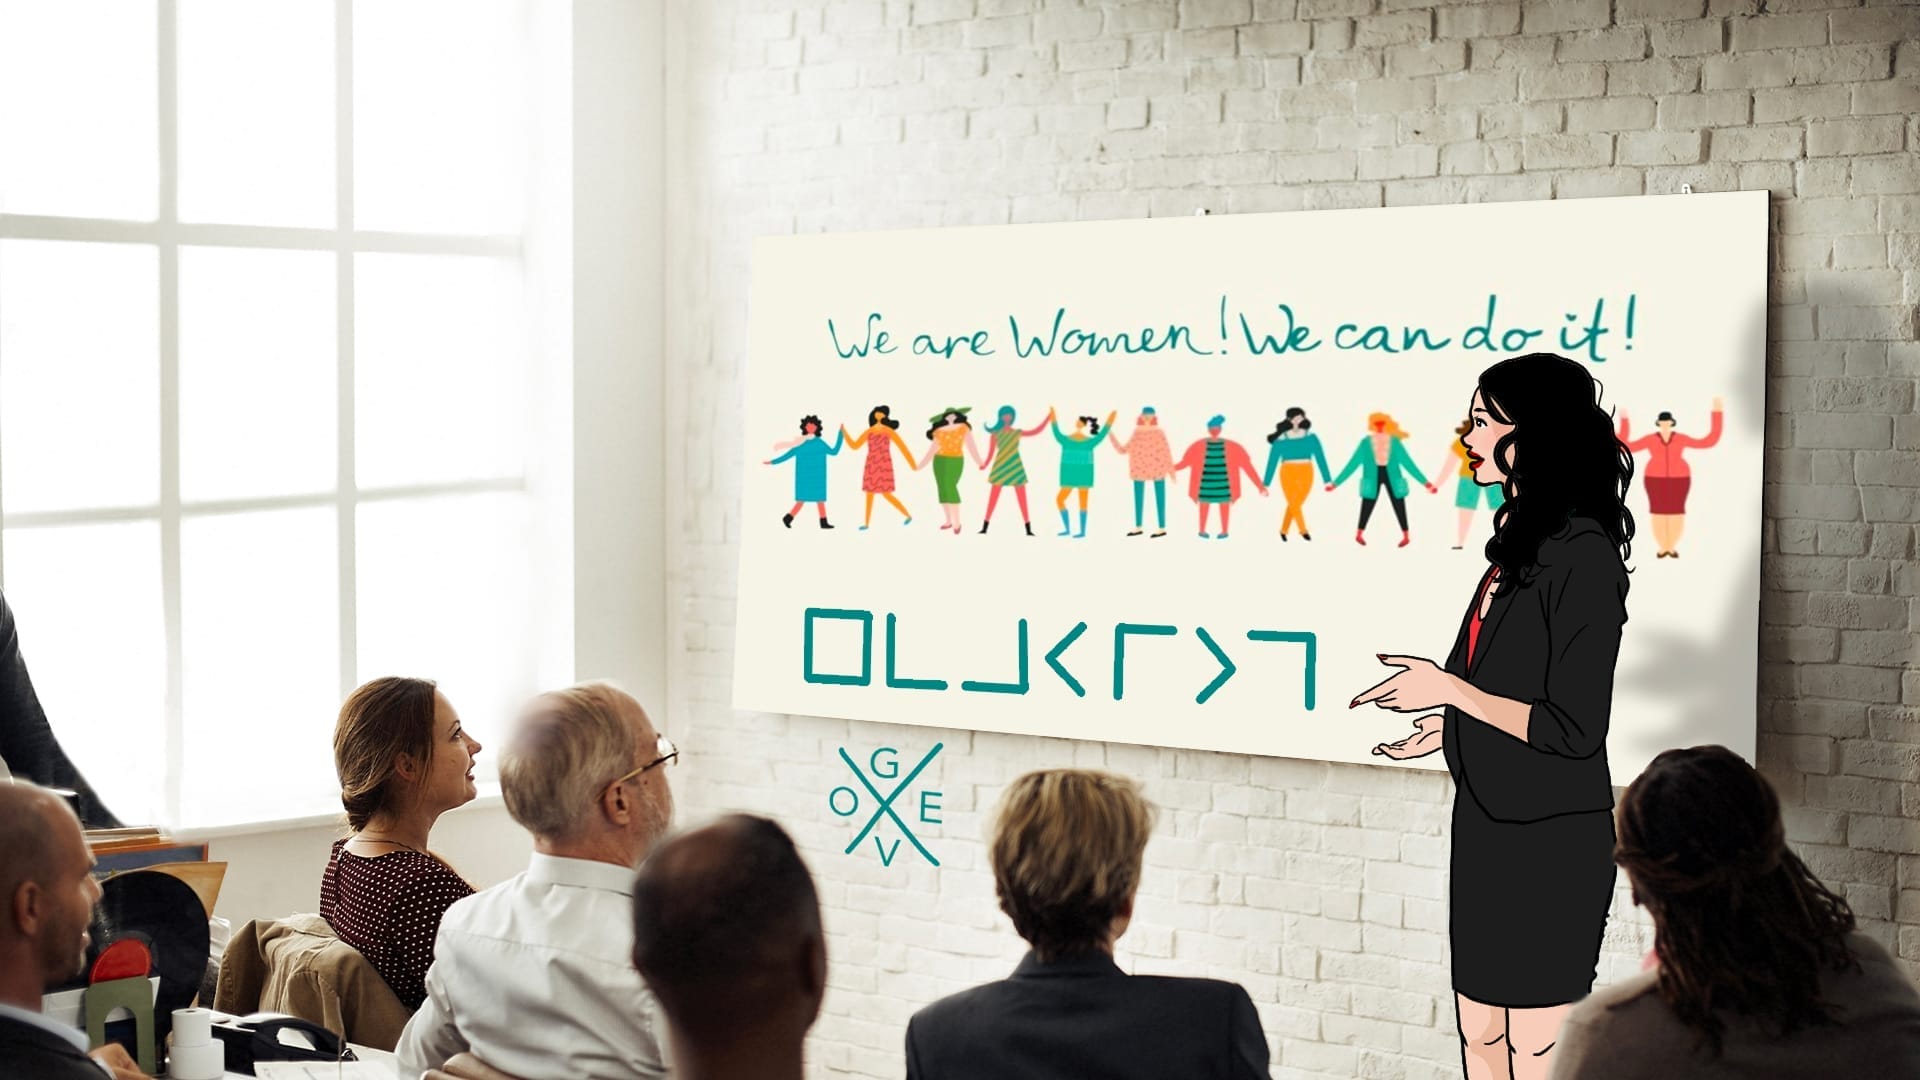 We are Women! We can do it!
G
O E
V